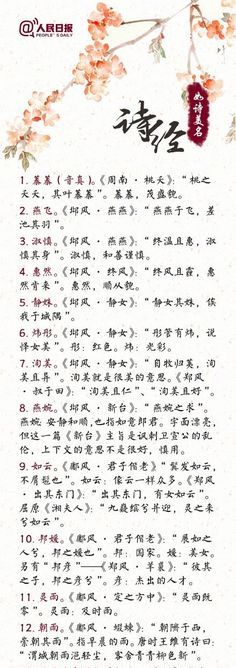 @人民日报
PEOPLE'S DAILY
如诗美名
诗经
1. 蓁蓁（音真）。《周南·桃夭》：“桃之
夭夭，其叶蓁蓁”。蓁蓁，茂盛貌。
2. 燕飞。《邶风·燕燕》：“燕燕于飞，差
池其羽”。
3. 淑慎。《邶风·燕燕》：“终温且惠，淑
慎其身”。淑慎，和善谨慎。
4. 惠然。《邶风·终风》：“终风且霾，惠
然肯来”。惠然，顺从貌。
5. 静姝。《邶风·静女》：“静女其姝，俟
我于城隅”。
6. 炜彤。《邶风·静女》：“彤管有炜，说
怿女美”。彤：红色。炜：光彩。
7. 洵美。《邶风·静女》：“自牧归荑，洵
美且异”。洵美就是很美的意思。《郑风
·叔于田》：“洵美且仁”、“洵美且好”。
8. 燕婉。《邶风·新台》：“燕婉之求”。
燕婉 安静和顺，也指如意郎君。字面漂亮，
但这一篇《新台》主旨是讽刺卫宣公的乱
伦，上下文的意思不是很好，慎用。
9. 如云。《鄘风·君子偕老》“鬒发如云，
不屑髢也”。如云：像云一样众多。《郑风
·出其东门》：“出其东门，有女如云”。
屈原《湘夫人》：“九嶷缤兮并迎，灵之来
兮如云”。
10. 邦媛。《鄘风·君子偕老》：“展如之
人兮，邦之媛也”。邦：国家。媛：美女。
另有“邦彦”——《郑风·羊裘》：“彼其
之子，邦之彦兮”。彦：杰出的人才。
11. 灵雨。《鄘风·定之方中》：“灵雨既
零”。灵雨：及时雨。
12. 朝雨。《鄘风·蝃蝀》：“朝隮于西，
崇朝其雨”。指早晨的雨。唐时王维有诗曰：
“渭城朝雨浥轻尘，客舍青青柳色新”。